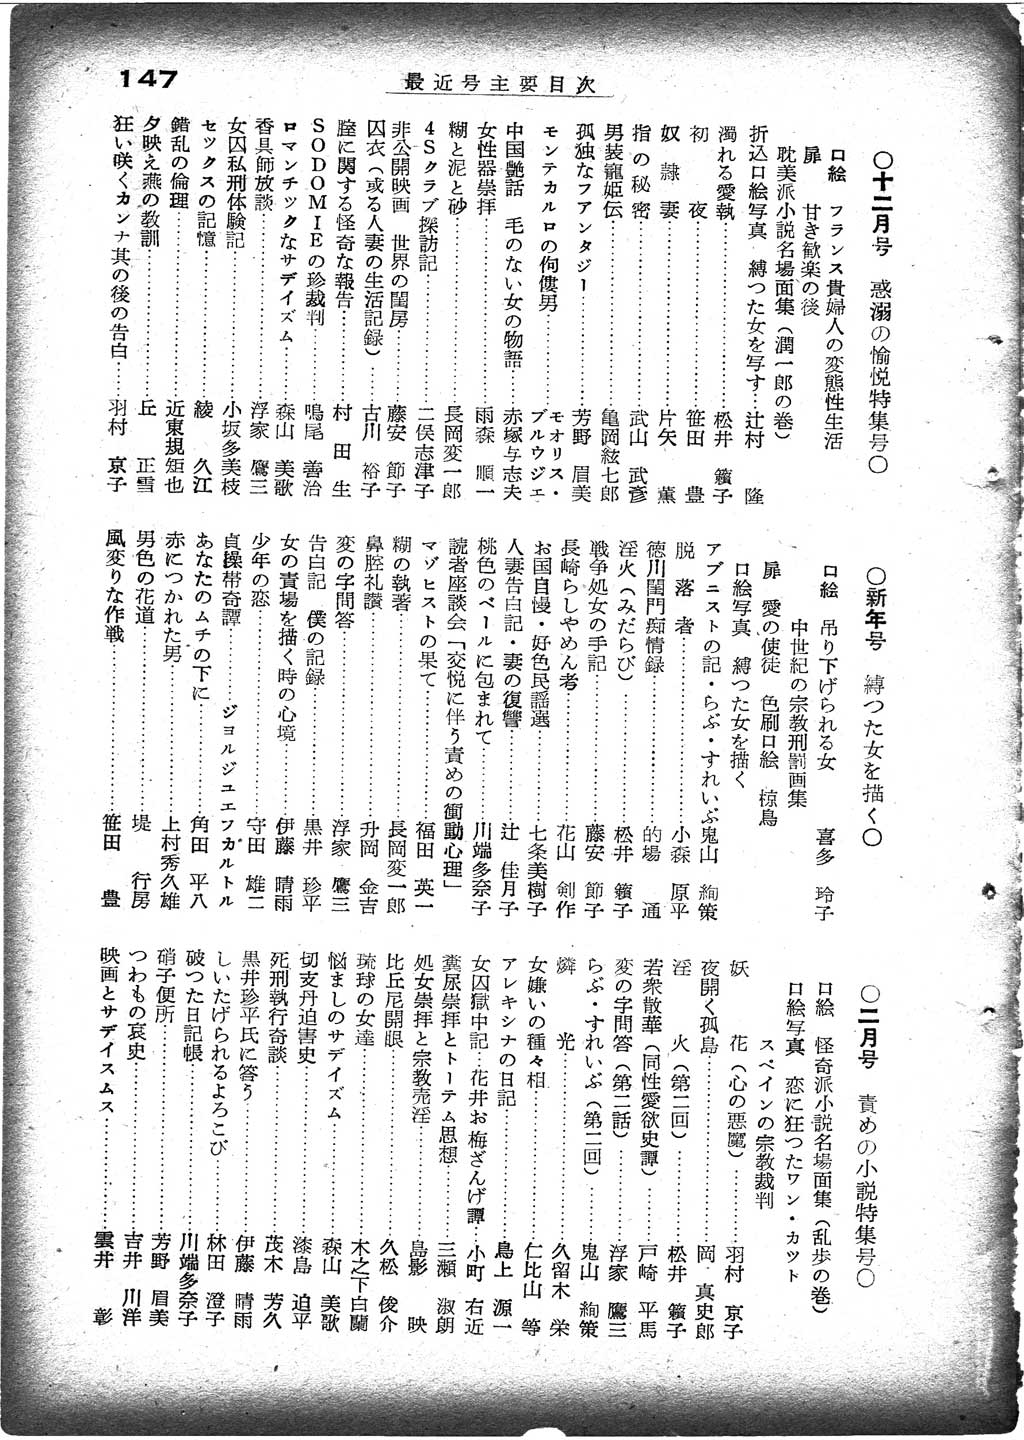 147
最近号主要目次
○十二月号　惑溺の愉悦特集号○
口絵　フランス貴婦人の変態性生活
扉　甘き歓楽の後
耽美派小説名場面集（潤一郎の巻）
折込口絵写真　縛つた女を写す…辻村　隆
濁れる愛執……………松井　籟子
初　夜……………笹田　豊
奴　隷　妻……………片矢　薫
指の秘密……………武山　武彦
男装寵姫伝……………亀岡絃七郎
孤独なフアンタジー……………芳野　眉美
モンテカルロの佝僂男……………モオリス・ブルウジエ
中国艶話　毛のない女の物語……………赤塚与志夫
女性器崇拝……………雨森　順一
糊と泥と砂……………長岡変一郎
4Sクラブ探訪記……………二俣志津子
非公開映画　世界の閨房……………藤安　節子
囚衣（或る人妻の生活記録）……………古川　裕子
膣に関する怪奇な報告……………村　田　生
SODOMIEの珍裁判……………鳴尾　善治
ロマンチックなサデイズム……………森山　美歌
香具師放談……………浮家　鷹三
女囚私刑体験記……………小坂多美枝
セックスの記憶……………綾　久江
錯乱の倫理……………近東規矩也
夕映え燕の教訓……………丘　正雪
狂い咲くカンナ其の後の告白……羽村　京子
○新年号　縛つた女を描く○
口絵　吊り下げられる女　喜多　玲子
中世紀の宗教刑罰画集
扉　愛の使徒　色刷口絵　椋鳥
口絵写真　縛つた女を描く
アブニストの記・らぶ・すれいぶ鬼山　絢策
脱　落　者……………小森　原平
徳川閨門痴情録……………的場　通
淫火（みだらび）……………松井　籟子
戦争処女の手記……………藤安　節子
長崎らしやめん考……………花山　剣作
お国自慢・好色民謡選……………七条美樹子
人妻告白記・妻の復讐……………辻　佳月子
桃色のベールに包まれて……………川端多奈子
読者座談会「交悦に伴う責めの衝動心理」
マゾヒストの果て……………福田　英一
糊の執著……………長岡変一郎
鼻腔礼讃……………升岡　金吉
変の字問答……………浮家　鷹三
告白記　僕の記録……………黒井　珍平
女の責場を描く時の心境……………伊藤　晴雨
少年の恋……………守田　雄二
貞操帯奇譚………ジヨルジユエフカルトル
あなたのムチの下に……………角田　平八
赤につかれた男……………上村秀久雄
男色の花道……………堤　行房
風変りな作戦……………笹田　豊
○二月号　責めの小説特集号○
口絵　怪奇派小説名場面集（乱歩の巻）
口絵写真　恋に狂つたワン・カツト
スペインの宗教裁判
妖　花（心の悪魔）……………羽村　京子
夜開く孤島……………岡　真史郎
淫　火（第二回）……………松井　籟子
若衆散華（同性愛欲史譚）……………戸崎　平馬
変の字問答（第二話）……………浮家　鷹三
らぶ・すれいぶ（第二回）……………鬼山　絢策
燐　光……………久留木　栄
女嫌いの種々相……………仁比山　等
アレキシナの日記……………島上　源一
女囚獄中記…花井お梅ざんげ譚…小町　右近
糞尿崇拝とトーテム思想……………三瀬　淑朗
処女崇拝と宗教売淫……………島影　映
比丘尼開眼……………久松　俊介
琉球の女達……………木之下白蘭
悩ましのサデイズム……………森山　美歌
切支丹迫害史……………漆島　迫平
死刑執行奇談……………茂木　芳久
黒井珍平氏に答う……………伊藤　晴雨
しいたげられるよろこび……………林田　澄子
破つた日記帳……………川端多奈子
硝子便所……………芳野　眉美
つわもの哀史……………吉井　川洋
映画とサデイスムス……………雲井　彰